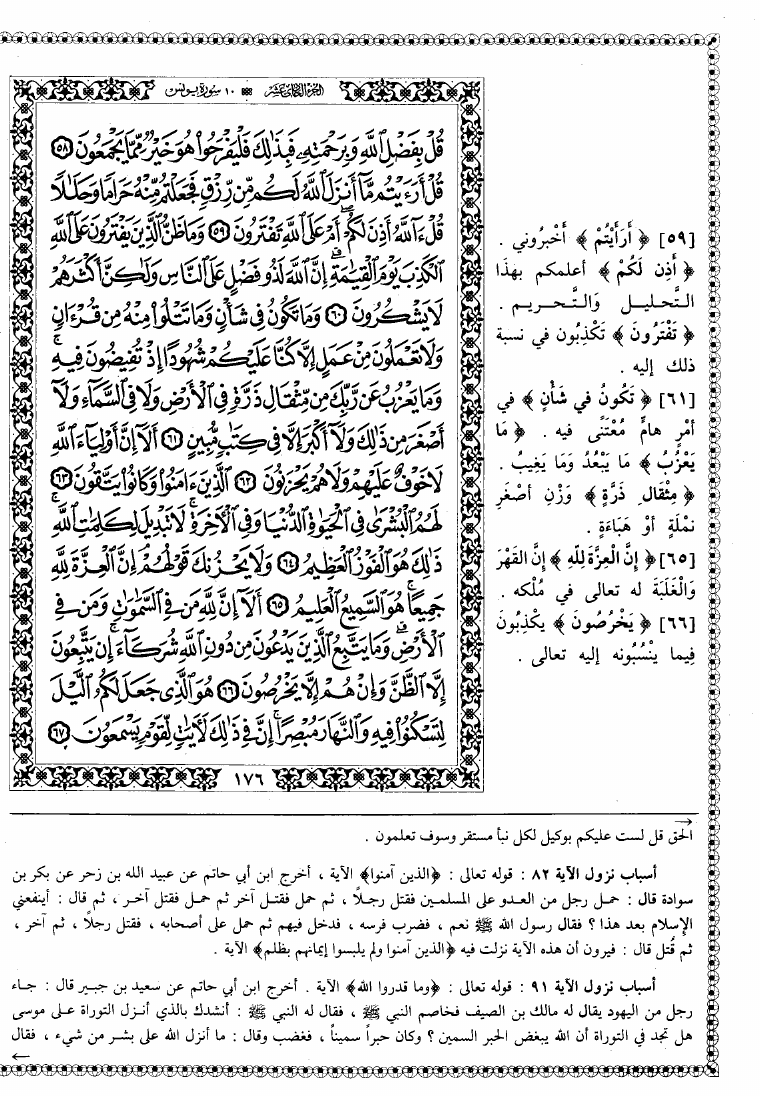 الجزء الحادي عشر ١٠ سورة يونس
قُلْ بِفَضْلِ ٱللَّهِ وَبِرَحْمَتِهِۦ فَبِذَٰلِكَ فَلْيَفْرَحُوا۟ هُوَ خَيْرٌ مِّمَّا يَجْمَعُونَ ٥٨
قُلْ أَرَءَيْتُم مَّآ أَنزَلَ ٱللَّهُ لَكُم مِّن رِّزْقٍ فَجَعَلْتُم مِّنْهُ حَرَامًا وَحَلَٰلًا
قُلْ ءَآللَّهُ أَذِنَ لَكُمْ أَمْ عَلَى ٱللَّهِ تَفْتَرُونَ ٥٩ وَمَا ظَنُّ ٱلَّذِينَ يَفْتَرُونَ عَلَى ٱللَّهِ
ٱلْكَذِبَ يَوْمَ ٱلْقِيَٰمَةِ إِنَّ ٱللَّهَ لَذُو فَضْلٍ عَلَى ٱلنَّاسِ وَلَٰكِنَّ أَكْثَرَهُمْ
لَا يَشْكُرُونَ ٦٠ وَمَا تَكُونُ فِى شَأْنٍ وَمَا تَتْلُوا۟ مِنْهُ مِن قُرْءَانٍ
وَلَا تَعْمَلُونَ مِنْ عَمَلٍ إِلَّا كُنَّا عَلَيْكُمْ شُهُودًا إِذْ تُفِيضُونَ فِيهِ
وَمَا يَعْزُبُ عَن رَّبِّكَ مِن مِّثْقَالِ ذَرَّةٍ فِى ٱلْأَرْضِ وَلَا فِى ٱلسَّمَآءِ وَلَآ
أَصْغَرَ مِن ذَٰلِكَ وَلَآ أَكْبَرَ إِلَّا فِى كِتَٰبٍ مُّبِينٍ ٦١ أَلَآ إِنَّ أَوْلِيَآءَ ٱللَّهِ
لَا خَوْفٌ عَلَيْهِمْ وَلَا هُمْ يَحْزَنُونَ ٦٢ ٱلَّذِينَ ءَامَنُوا۟ وَكَانُوا۟ يَتَّقُونَ ٦٣
لَهُمُ ٱلْبُشْرَىٰ فِى ٱلْحَيَوٰةِ ٱلدُّنْيَا وَفِى ٱلْءَاخِرَةِ لَا تَبْدِيلَ لِكَلِمَٰتِ ٱللَّهِ
ذَٰلِكَ هُوَ ٱلْفَوْزُ ٱلْعَظِيمُ ٦٤ وَلَا يَحْزُنكَ قَوْلُهُمْ إِنَّ ٱلْعِزَّةَ لِلَّهِ
جَمِيعًا هُوَ ٱلسَّمِيعُ ٱلْعَلِيمُ ٦٥ أَلَآ إِنَّ لِلَّهِ مَن فِى ٱلسَّمَٰوَٰتِ وَمَن فِى
ٱلْأَرْضِ وَمَا يَتَّبِعُ ٱلَّذِينَ يَدْعُونَ مِن دُونِ ٱللَّهِ شُرَكَآءَ إِن يَتَّبِعُونَ
إِلَّا ٱلظَّنَّ وَإِنْ هُمْ إِلَّا يَخْرُصُونَ ٦٦ هُوَ ٱلَّذِى جَعَلَ لَكُمُ ٱلَّيْلَ
لِتَسْكُنُوا۟ فِيهِ وَٱلنَّهَارَ مُبْصِرًا إِنَّ فِى ذَٰلِكَ لَءَايَٰتٍ لِّقَوْمٍ يَسْمَعُونَ ٦٧
١٧٦
[٥٩] ﴿ أَرَأَيْتُمْ ﴾ أَخْبِرُوني .
﴿ أَذِن لَكُمْ ﴾ أعلمكم بهذا
التَّحليل وَالتَّحريم .
﴿ تَفْتَرُونَ ﴾ تَكْذِبُون في نسبة
ذلك إليه .
[٦١] ﴿ تَكُونُ في شَأْنٍ ﴾ في
أمْرٍ هامٍّ مُعْتَنًى فيه . ﴿ مَا
يَعْزُبُ ﴾ مَا يَبْعُدُ وَمَا يَغِيبُ .
﴿ مِثْقَالِ ذَرَّةٍ ﴾ وَزْنِ أصْغَرِ
نمْلَةٍ أوْ هَبَاءَةٍ .
[٦٥] ﴿ إِنَّ الْعِزَّةَ لِلّهِ ﴾ إِنَّ القَهْرَ
وَالْغَلَبَةَ له تعالى في مُلْكه .
[٦٦] ﴿ يَخْرُصُونَ ﴾ يكْذِبُونَ
فِيما يَنْسُبُونه إليه تعالى .
الحق قل لست عليكم بوكيل لكل نبأ مستقر وسوف تعلمون .
أسباب نزول الآية ٨٢ : قوله تعالى : ﴿الذين آمنوا﴾ الآية ، أخرج ابن أبي حاتم عن عبيد الله بن زحر عن بكر بن
سوادة قال : حمل رجل من العدو على المسلمين فقتل رجلاً ، ثم حمل فقتل آخر ثم حمل فقتل آخر ، ثم قال : أينفعني
الإسلام بعد هذا ؟ فقال رسول الله ﷺ نعم ، فضرب فرسه ، فدخل فيهم ثم حمل على أصحابه ، فقتل رجلاً ، ثم آخر ،
ثم قُتل قال : فيرون أن هذه الآية نزلت فيه ﴿الذين آمنوا ولم يلبسوا إيمانهم بظلم﴾ الآية .
أسباب نزول الآية ٩١ : قوله تعالى : ﴿وما قدروا الله﴾ الآية . أخرج ابن أبي حاتم عن سعيد بن جبير قال : جاء
رجل من اليهود يقال له مالك بن الصيف فخاصم النبي ﷺ ، فقال له النبي ﷺ : أنشدك بالذي أنزل التوراة على موسى
هل تجد في التوراة أن الله يبغض الحبر السمين ؟ وكان حبراً سميناً ، فغضب وقال : ما أنزل الله على بشر من شيء ، فقال